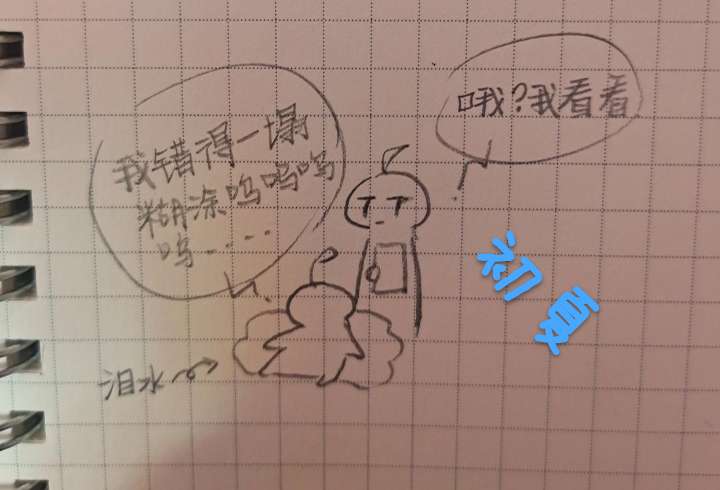 我错得一塌
糊涂呜呜呜
呜....
哦?我看看
泪水
初夏